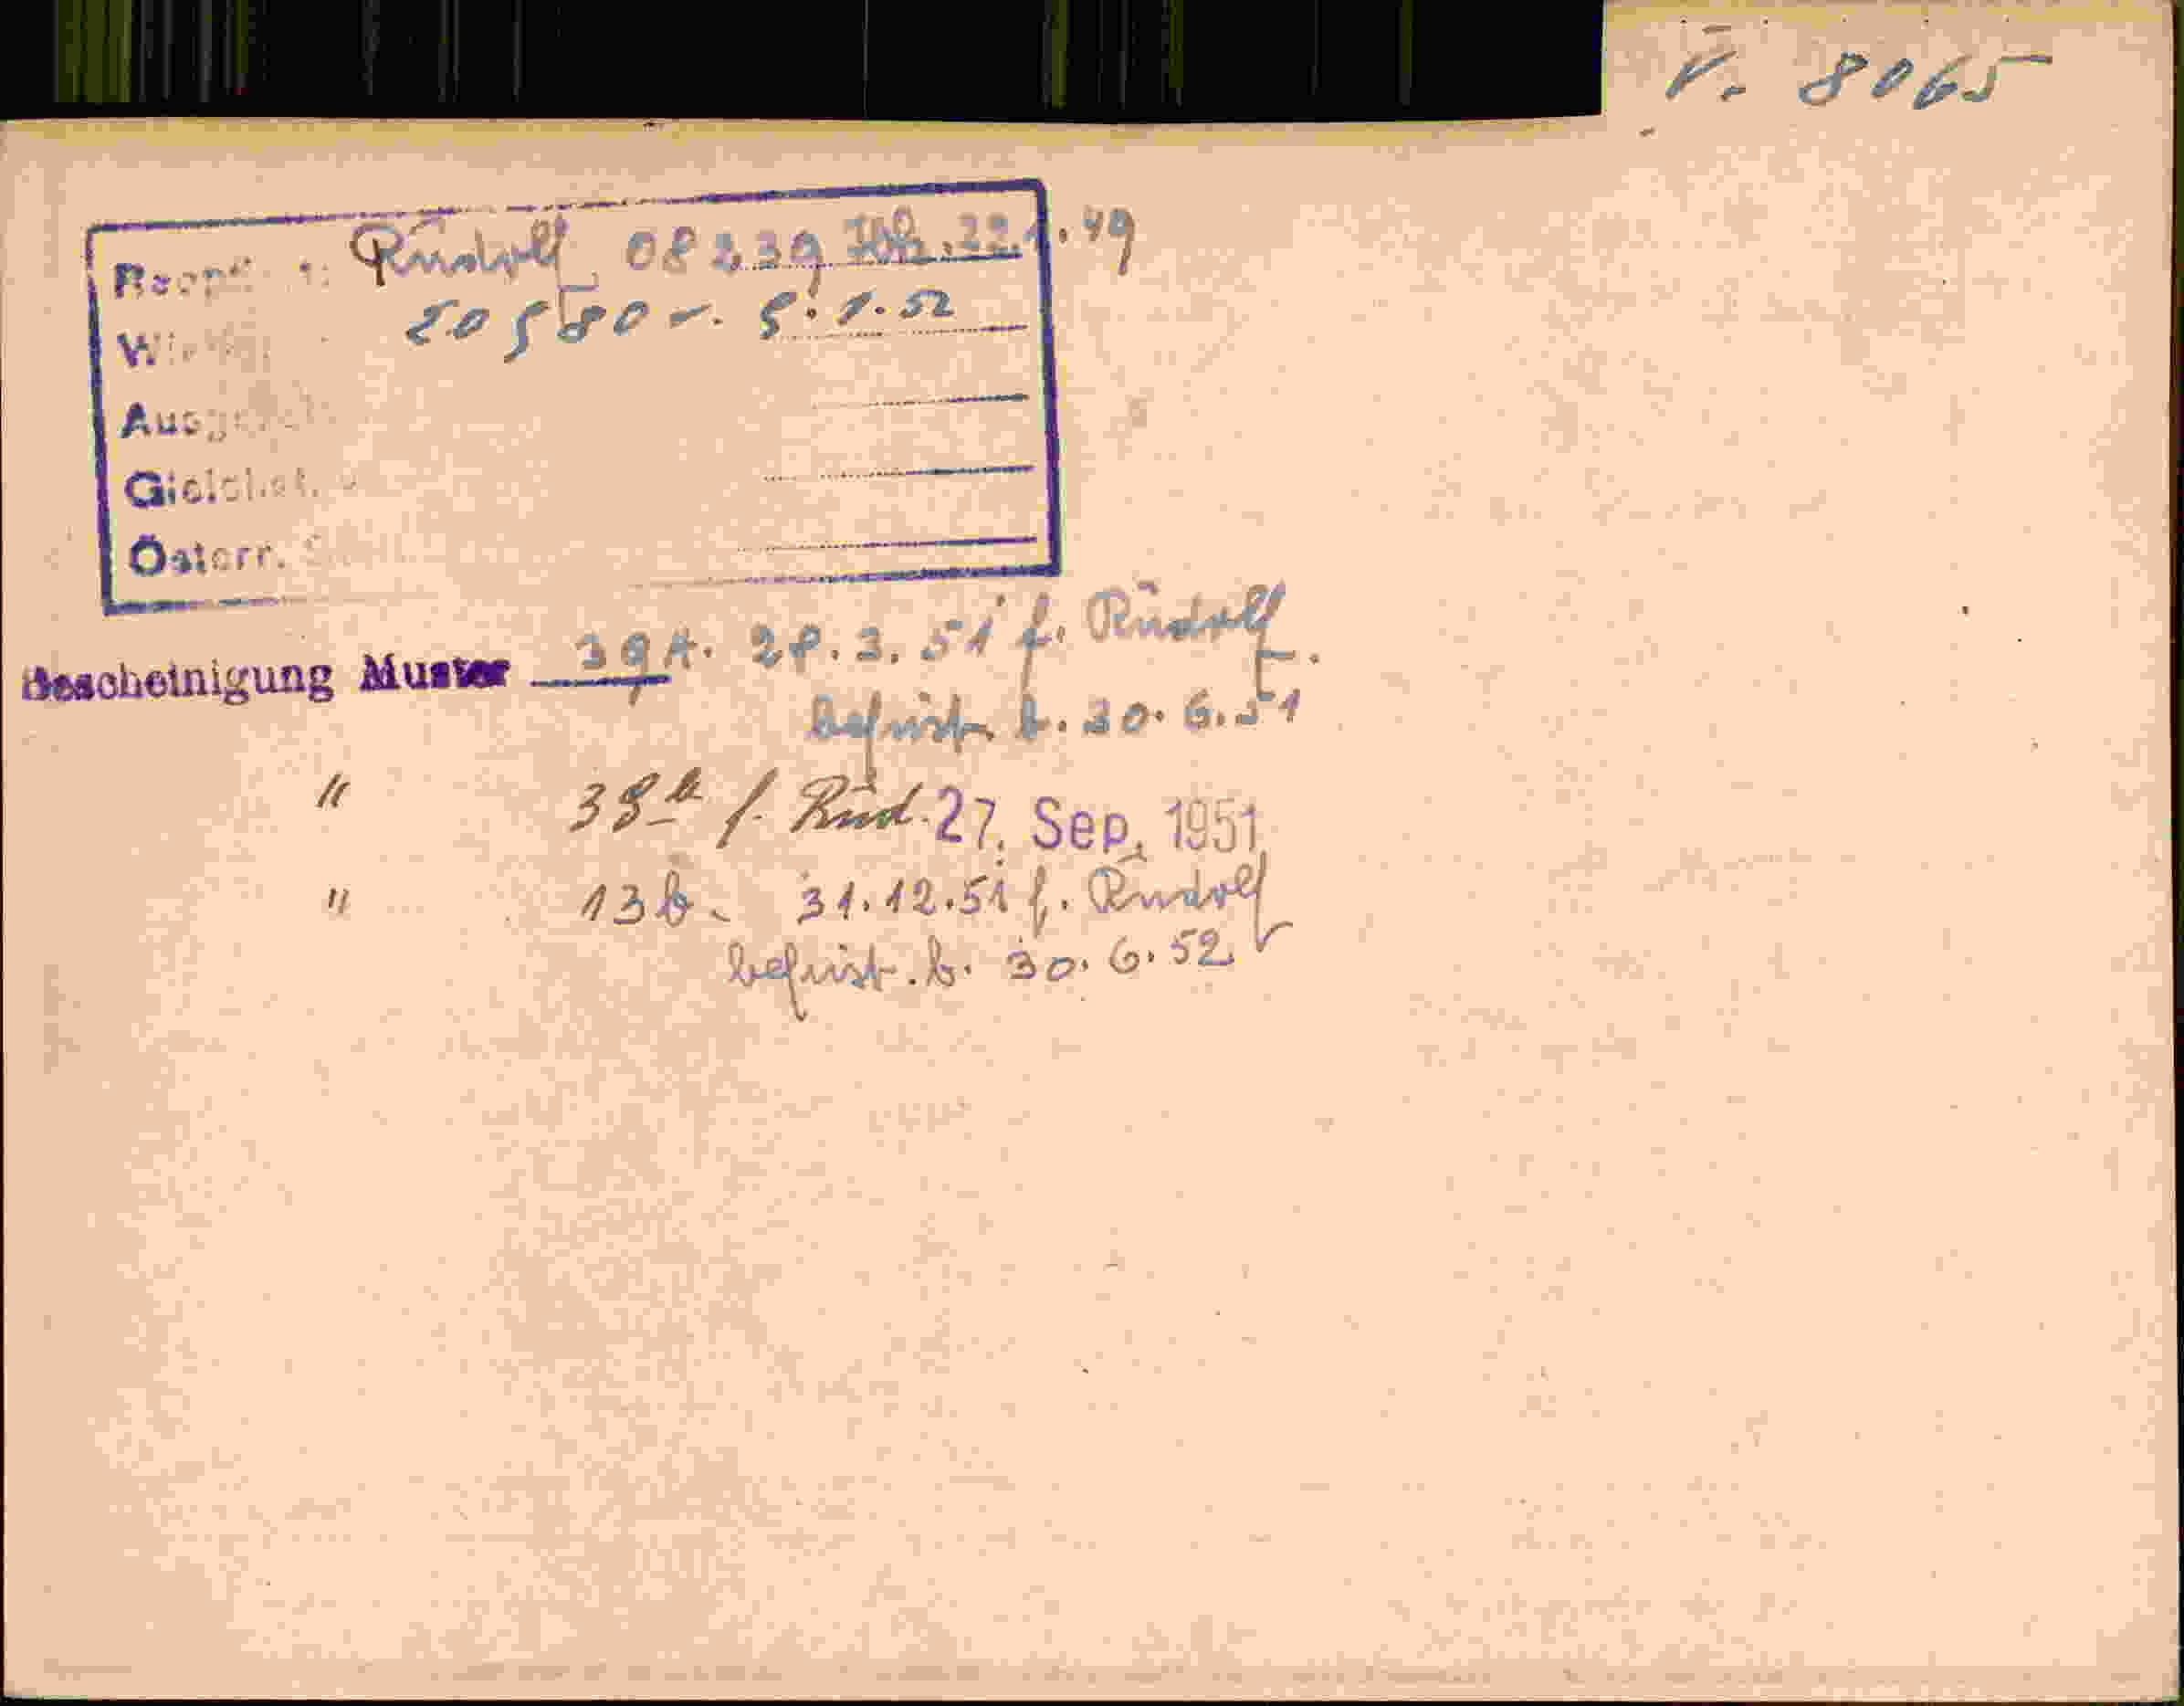 V. 8065
Rudolf 08239 22.1.49
20580 v. 5.1.52
Österr.
Bescheinigung Muster 39A. 28.3.51 f. Rudolf
befrist. b. 30.6.51
" 38a f. Rud. 27. Sep. 1951
" 13b. 31.12.51 f. Rudolf
befrist. b. 30.6.52